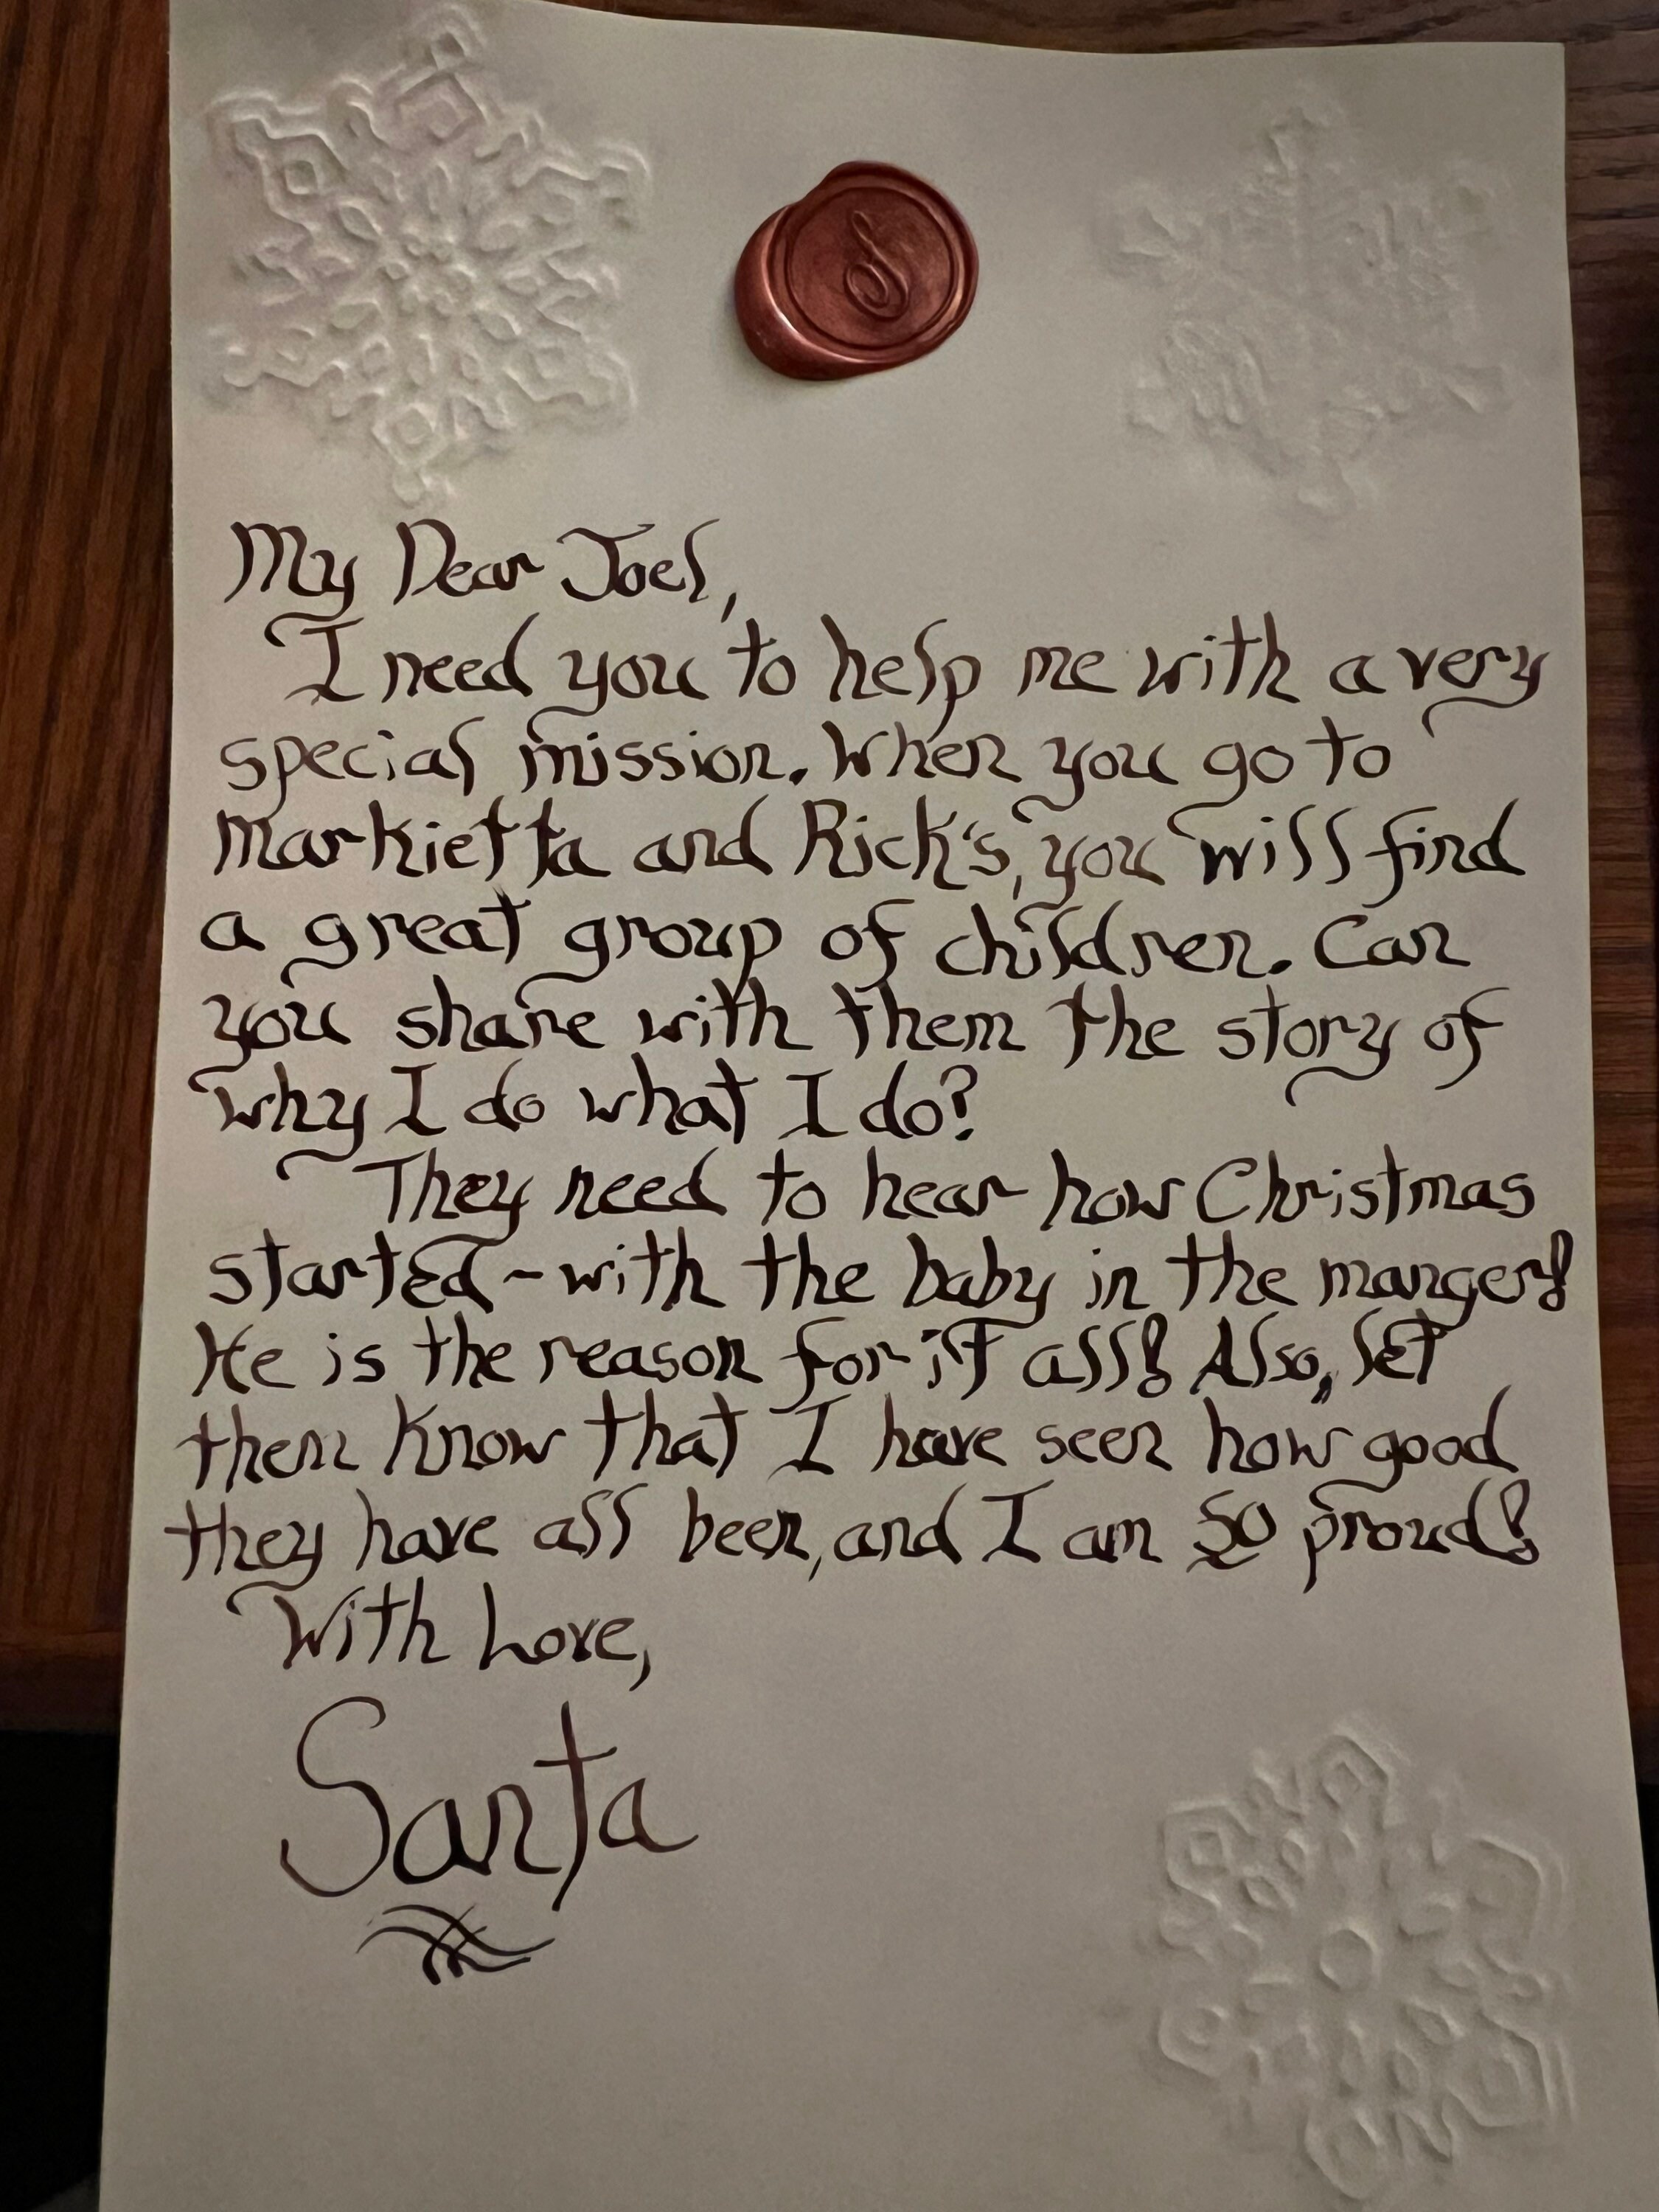 My Dear Joel,
I need you to help me with a very
special mission. When you go to
Markietta and Rick's, you will find
a great group of children. Can
you share with them the story of
why I do what I do?
They need to hear how Christmas
started - with the baby in the manger!
He is the reason for it all! Also, let
them know that I have seen how good
they have all been, and I am so proud!
With Love,
Santa